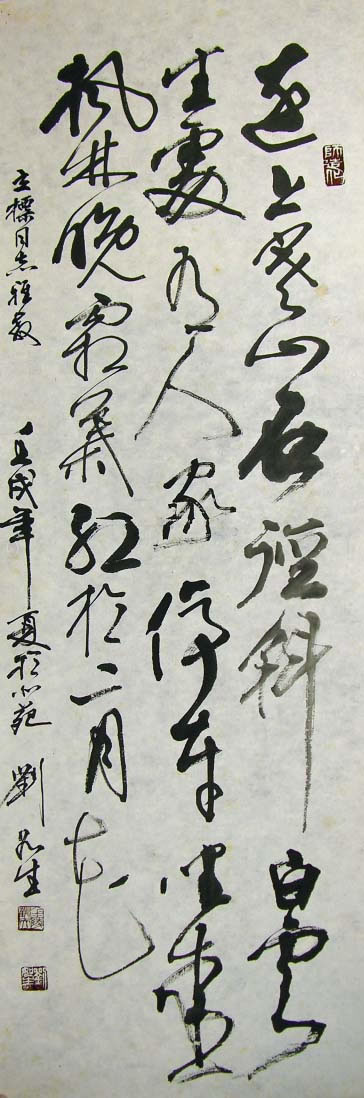 远上寒山石径斜白云
生处有人家停车坐爱
枫林晚霜叶红于二月花
同志雅教
壬戌年夏于北苑 劉